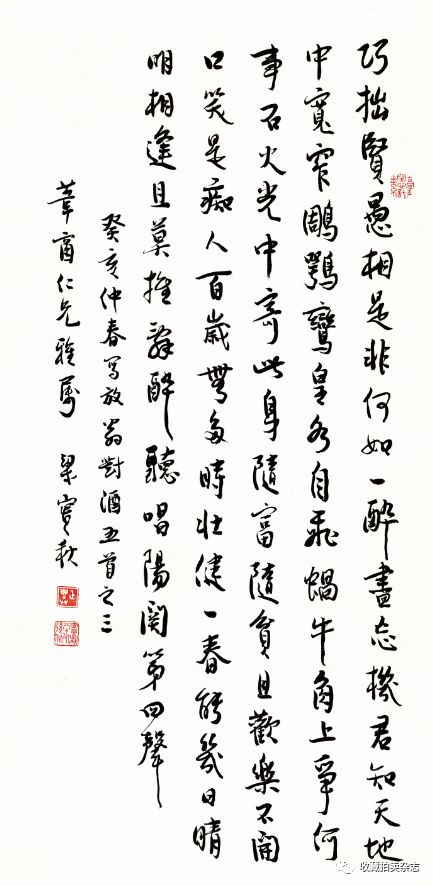 巧拙賢愚相是非何如一醉盡忘機君知天地
中寬窄鵰鶚鸞皇各自飛蝸牛角上爭何
事石火光中寄此身隨富隨貧且歡樂不開
口笑是痴人百歲無多時壯健一春能幾日晴
明相逢且莫推辭醉聽唱陽關第四聲
癸亥仲春寫放翁對酒五首之三
葦窗仁兄雅屬 梁實秋
收藏拍卖杂志